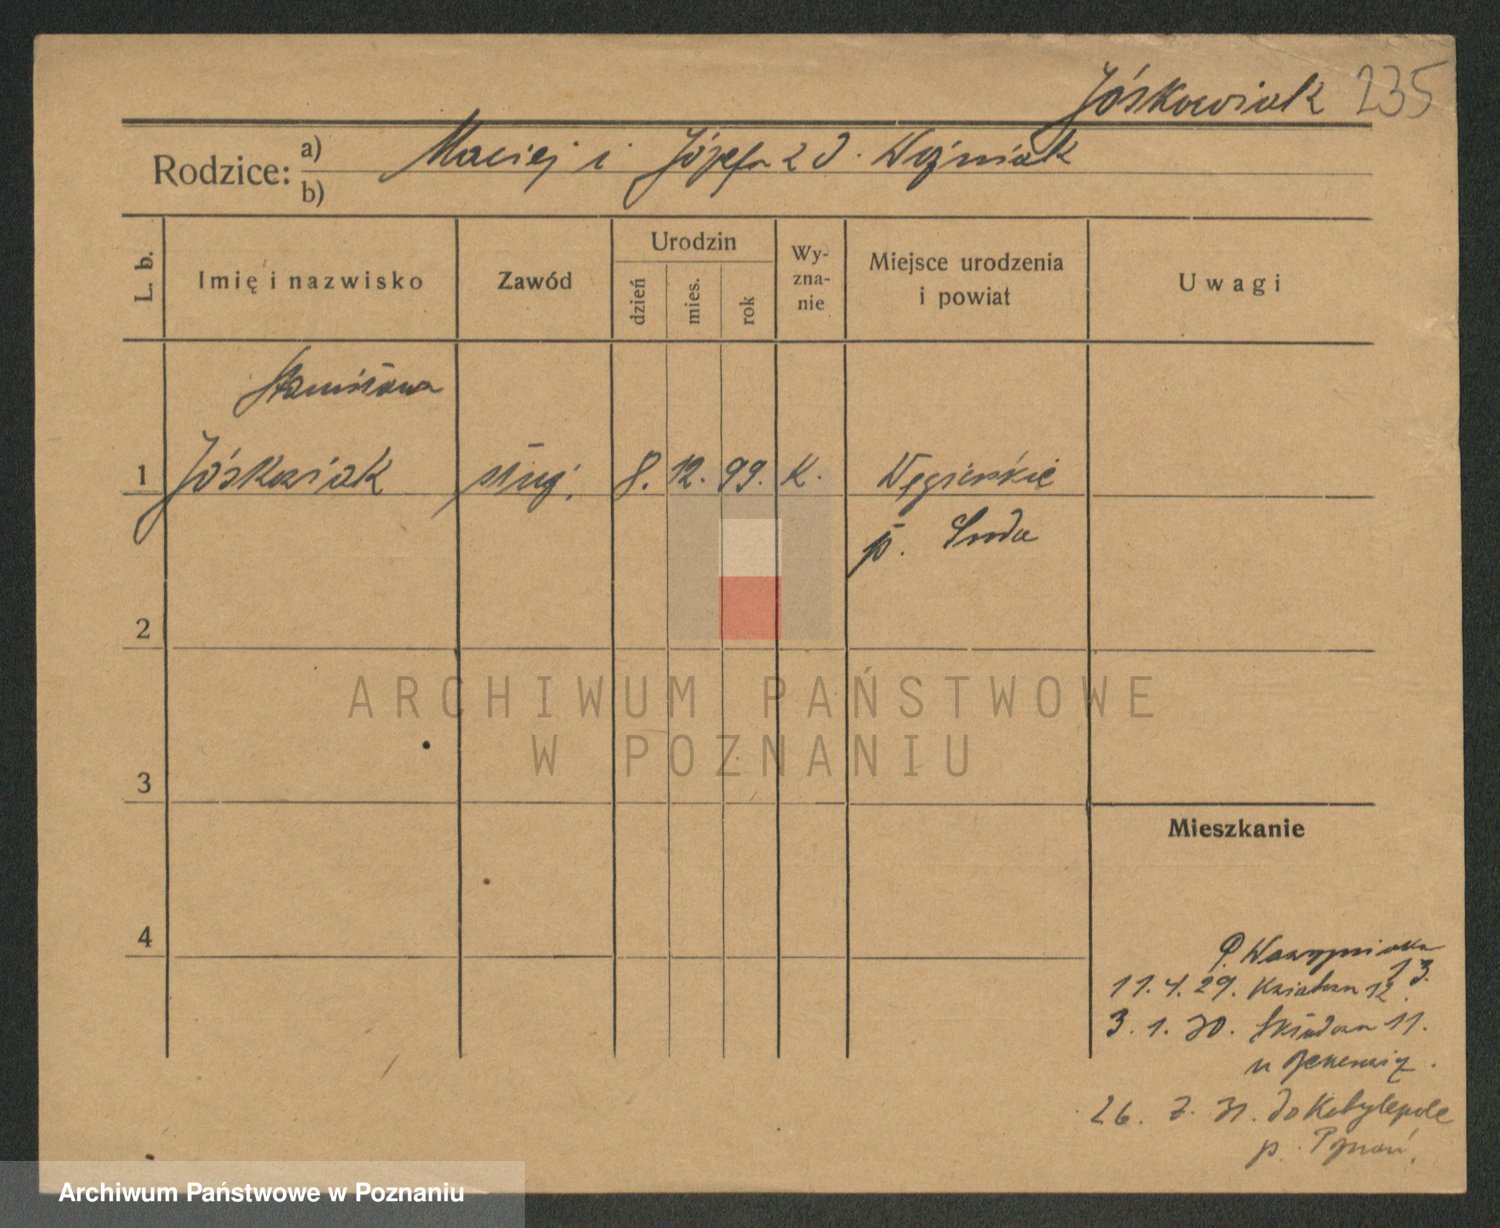 Jóśkowiak 235
Rodzice: a) Maciej i Józefa z d. Woźniak
b)
L. b. Imię i nazwisko Zawód Urodzin dzień mies. rok Wyznanie Miejsce urodzenia i powiat Uwagi
Stanisława
1 Jóśkowiak służ. 8. 12. 99. K. Węgierskie
p. Środa
2
ARCHIWUM PAŃSTWOWE
W POZNANIU
3
Mieszkanie
4
P. Wawrzyniaka
13.
11.4.29. 12.
3.1.30. 11.
u
26. 31. do Kobylepole
p. Poznań.
Archiwum Państwowe w Poznaniu